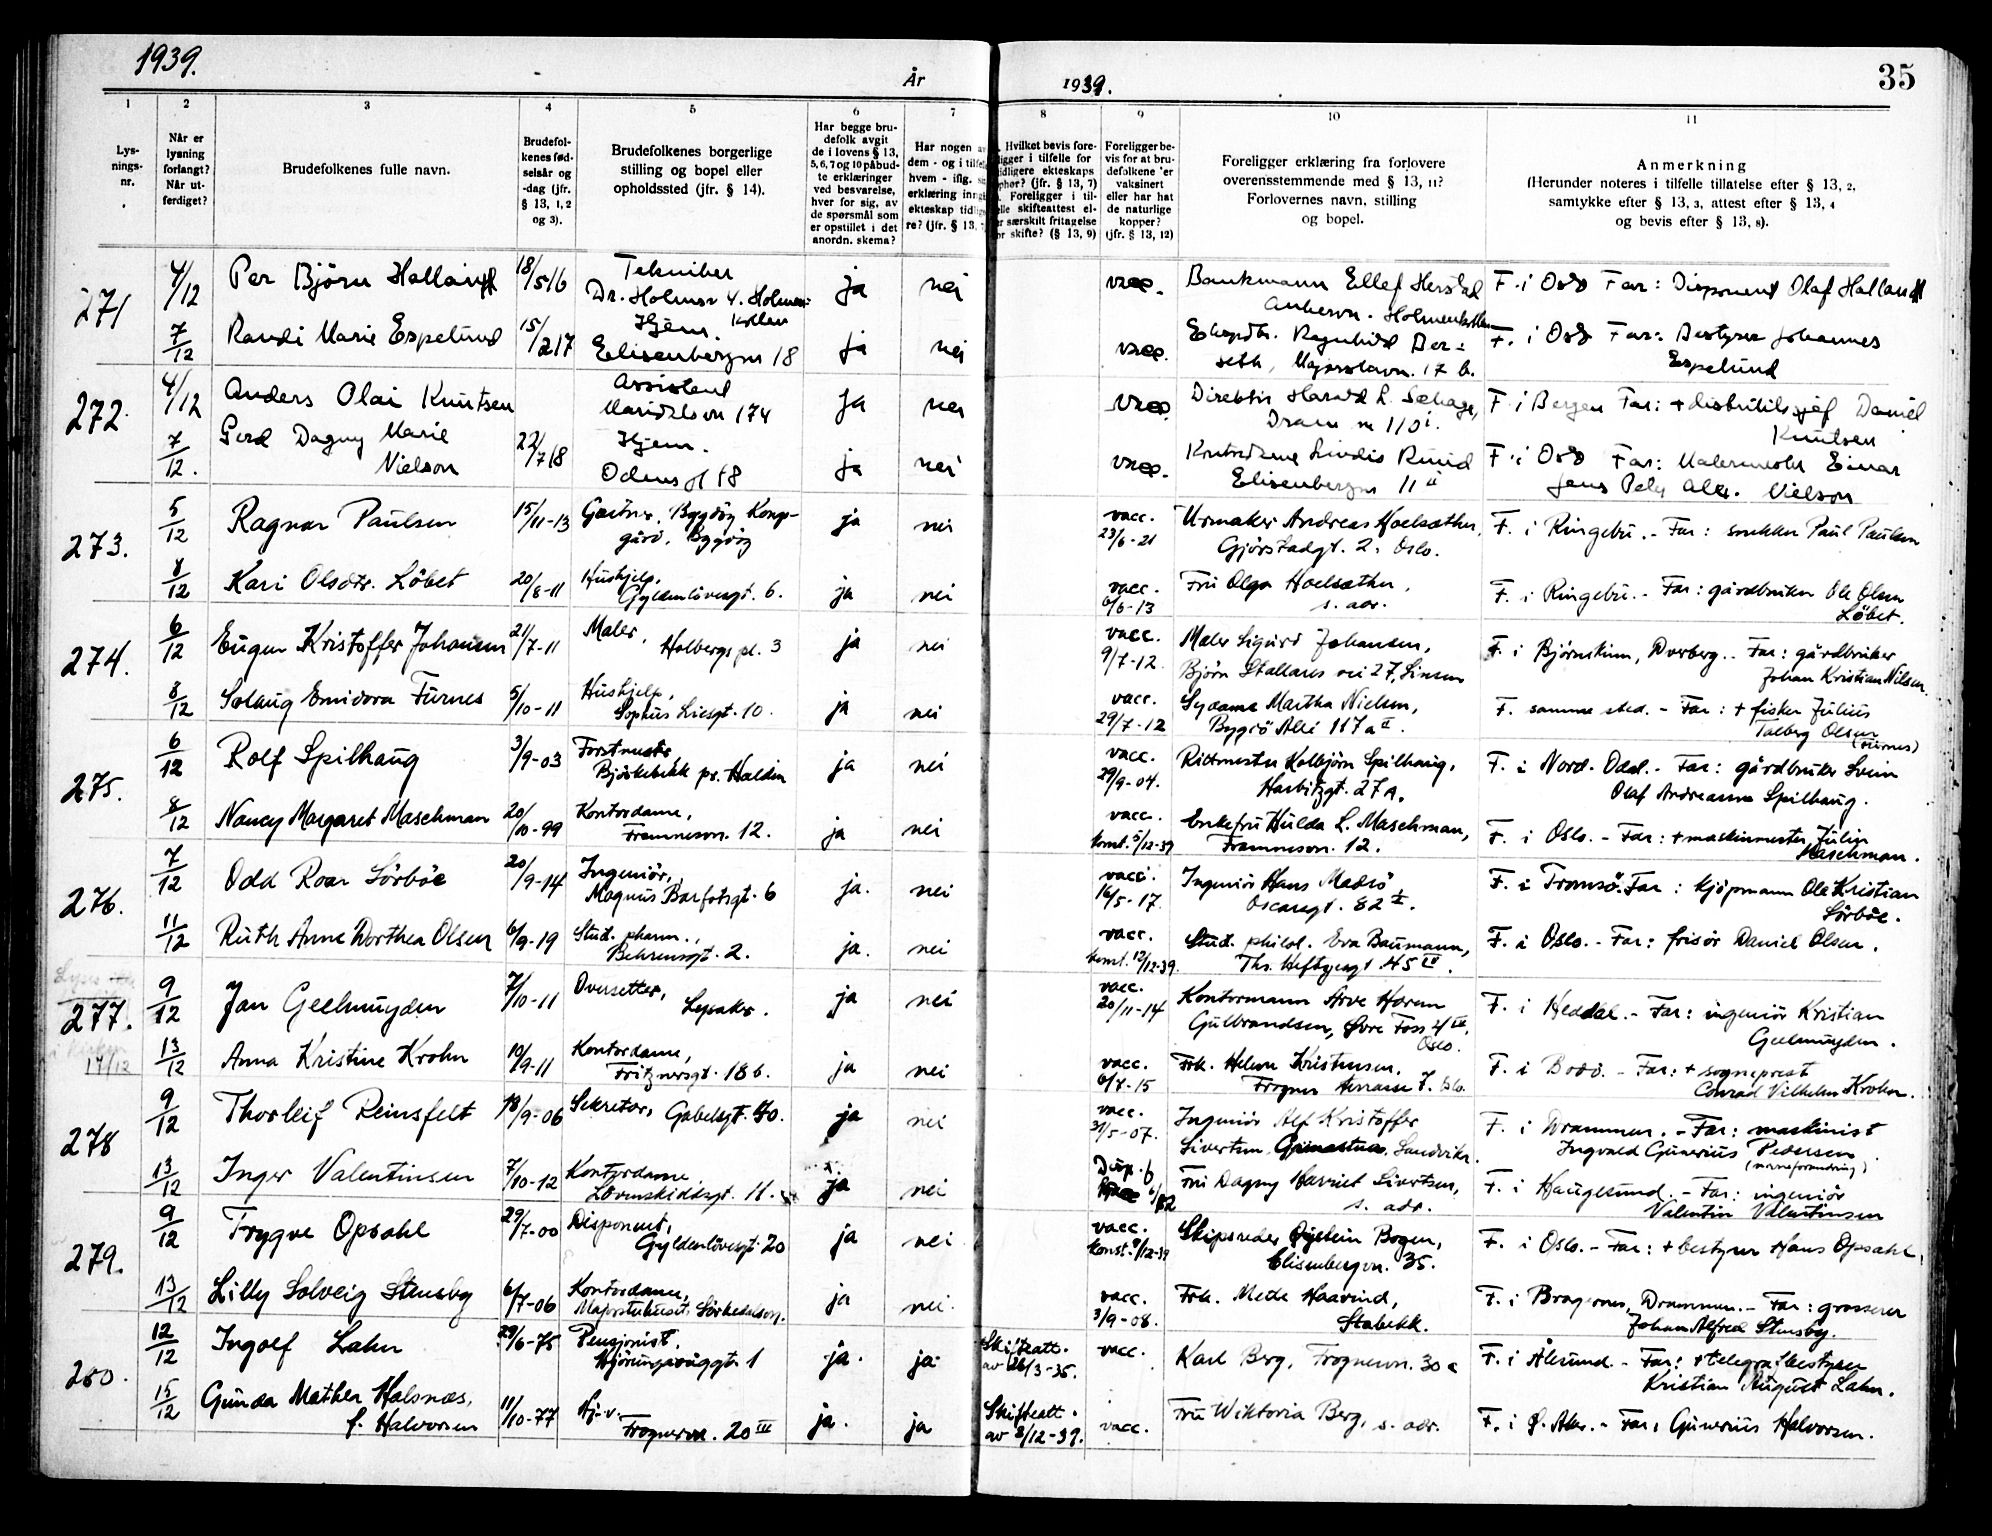 1939.
År
1939.
35
1
2
3
4
5
6
7
8
9
10
11
Lys-
nings-
nr.
Når er
lysning
forlangt?
Når ut-
ferdiget?
Brudefolkenes fulle navn.
Brudefol-
kenes fød-
selsår og
-dag (jfr.
§ 13, 1, 2
og 3).
Brudefolkenes borgerlige
stilling og bopel eller
opholdssted (jfr. § 14).
Har begge bru-
defolk avgit
de i lovens § 13,
5, 6, 7 og 10 påbud-
te erklæringer
ved besvarelse,
hver for sig, av
de spørsmål som
er opstillet i det
anordn. skema?
Har nogen a
dem - og i tilfel
hvem - iflg. si
erklæring inngå
ekteskap tidlig
re? (jfr. § 13, 7
Hvilket bevis fore-
ligger i tilfelle for
tidligere ekteskaps
ophør? (jfr. § 13, 7)
Foreligger i til-
felle skifteattest el-
er særskilt fritagelse
for skifte? (§ 13, 9)
Foreligger be-
vis for at bru-
defolkene er
vaksinert
eller har hat
de naturlige
kopper?
(jfr. § 13, 12)
Foreligger erklæring fra forlovere
overensstemmende med § 13, 11?
Forlovernes navn, stilling
og bopel.
Anmerkning
(Herunder noteres i tilfelle tillatelse efter § 13, 2,
samtykke efter § 13, 3, attest efter § 13, 4
og bevis efter § 13, 8).
271 4/12 Per Björn Holland 18/5 16 Tekniker
Dr. Holms v. Holmen-
kollen ja nei vacc. Bankmann Ellef Herstad
Ankervn. Holmenkollen F. i Oslo Far: Disponent Olaf Holland
7/12 Randi Marie Espelund 15/2 17 Hjem.
Elisenbergvn 18 ja nei vacc. Ekspdtr. Ragnhild Ber-
seth, Majorstuvn. 17 b. F. i Oslo Far: Bestyrer Johannes
Espelund
272. 4/12 Anders Olai Knutsen Assistent
Maridalsvn 174 ja nei vacc Direktör Harald L.
Dramm vn 110 I. F i Bergen Far: + Daniel
Knutsen
7/12. Gerd Dagny Marie
Nielson 22/7 18 Hjem.
Odins gt 18 ja nei vacc. Kontordame Lindis Ruud
Elisenbergvn 11 II F. i Oslo Far: Malermester Einar
Jens Alex. Nielson
273. 5/12 Ragnar Paulsen 15/11-13 Gartner, Bygdöy Kongs-
gård, Bygdöy ja nei vacc.
23/6-21 Urmaker Andreas Hoelsæther,
Gjörstadgt. 2, Oslo. F. i Ringebu. - Far: snekker Paul Paulsen
8/12 Kari Olsdtr. Löbet 20/8-11 Hushjelp,
Gyldenlövesgt. 6. ja nei vacc.
6/6-13 Fru Olga Hoelsæther,
s. adr. F. i Ringebu. - Far: gårdbruker Ole Olsen
Löbet.
274. 6/12 Eugen Kristoffer Johansen 21/7-11 Maler,
Holbergs pl. 3 ja nei vacc.
9/7-12. Maler Sigurd Johansen,
Björn Stallares vei 27, Sinsen F. i Björnskinn, Dverberg. - Far: gårdbruker
Johan Kristian Nilsen.
8/12 Solaug Emidora Furnes 5/10-11 Hushjelp,
Sophus Liesgt. 10. ja nei vacc.
29/7-12 Sydame Martha Nielsen,
Bygdö Allé 117 a II. F. samme sted. - Far: + fisker Julius
Talberg Olsen
(Furnes)
275. 6/12 Rolf Spilhaug 3/9-03 Forstmester
Björkebekk pr. Halden ja nei vacc.
29/9-04. Rittmester Kolbjörn Spilhaug,
Harbitzgt. 27 A. F. i Nord. Odal. - Far: gårdbruker Svein
Olaf Andreassen Spilhaug.
8/12 Nancy Margaret Maschman 20/10-99 Kontordame,
Framnesvn. 12. ja nei vacc.
konst. 5/12-39 Enkefru Hulda L. Maschman,
Framnesvn. 12. F. i Oslo. - Far: + maskinmester Julin
Maschman.
276. 7/12 Odd Roar Sörböe 20/9-14 Ingeniör,
Magnus Barfotsgt. 6 ja. nei vacc.
16/5-17. Ingeniör Hans Madsö
Oscarsgt. 82 I. F. i Tromsö. Far: kjöpmann Ole Kristian
Sörböe.
11/12 Ruth Anne Dorthea Olsen 6/9-19 Stud. pharm.,
Behrensgt. 2. ja. nei vacc.
konst. 12/12-39. Stud. philol. Eva Baumann,
Ths. Heftyesgt. 45 IV. F. i Oslo. - Far: frisör Daniel Olsen.
277. 9/12 Jan Geelmuyden 7/10-11 Oversetter,
Lysaker. ja nei vacc.
20/11-14 Kontormann Arve Haren
Gulbrandsen, Övre Foss 4 III,
Oslo. F. i Heddal. - Far: ingeniör Kristian
Geelmuyden.
14/12
13/12 Anna Kristine Krohn 10/9-11 Kontordame,
Fritznersgt. 18 b. ja nei vacc.
6/7-15 Frk. Helene Kristensen,
Frogner terrasse 7. Oslo. F. i Bodö. - Far: + sogneprest
Conrad Vilhelm Krohn.
278 9/12 Thorleif Reinsfelt 18/9-06 Sekretær, Gabelsgt. 40. ja nei vacc.
31/5-07. Ingeniör Alf Kristoffer
Sivertsen, Sandvika. F. i Drammen. - Far: maskinist
Ingvald Gunerius Pedersen
(navneforandring)
13/12 Inger Valentinsen 7/10-12 Kontordame,
Lövenskioldsgt. 11. ja nei Disp. f.
6/12 Fru Dagny Harriet Sivertsen,
s. adr. F. i Haugesund. - Far: ingeniör
Valentin Valentinsen
279. 9/12 Trygve Opsahl 29/7-00 Disponent,
Gyldenlövesgt. 20 ja nei vacc.
konst. 9/12-39 Skipsreder Öistein Bogen,
Elisenbergvn. 35. F. i Oslo. - Far: + bestyrer Hans Opsahl.
13/12 Lilly Solveig Stensby 6/7-06 Kontordame,
Majorstuhuset, Sörkedalsvn. ja nei. vacc.
3/9-08. Frk. Mette Haavind,
Stabekk. F. i Bragernes, Drammen. - Far: grosserer
Johan Alfred Stensby.
280. 12/12 Ingolf Lahn 29/6-75 Pensjonist,
Hjörungavåggt. 1 ja. ja. Skifteatt.
av 26/3-35. vacc. Karl Berg, Frognervn. 30 a F. i Ålesund. - Far: + telegrafbestyrer
Kristian August Lahn.
15/12 Gunda Mathea Halsnæs,
f. Halvorsen 11/10-77 Hj.v.
Frognervn. 20 III ja. ja Skifteatt.
av 8/12-39. vacc. Fru Wiktoria Berg, s. adr. F. i Ø. Aker. - Far: Gunerius Halvorsen.